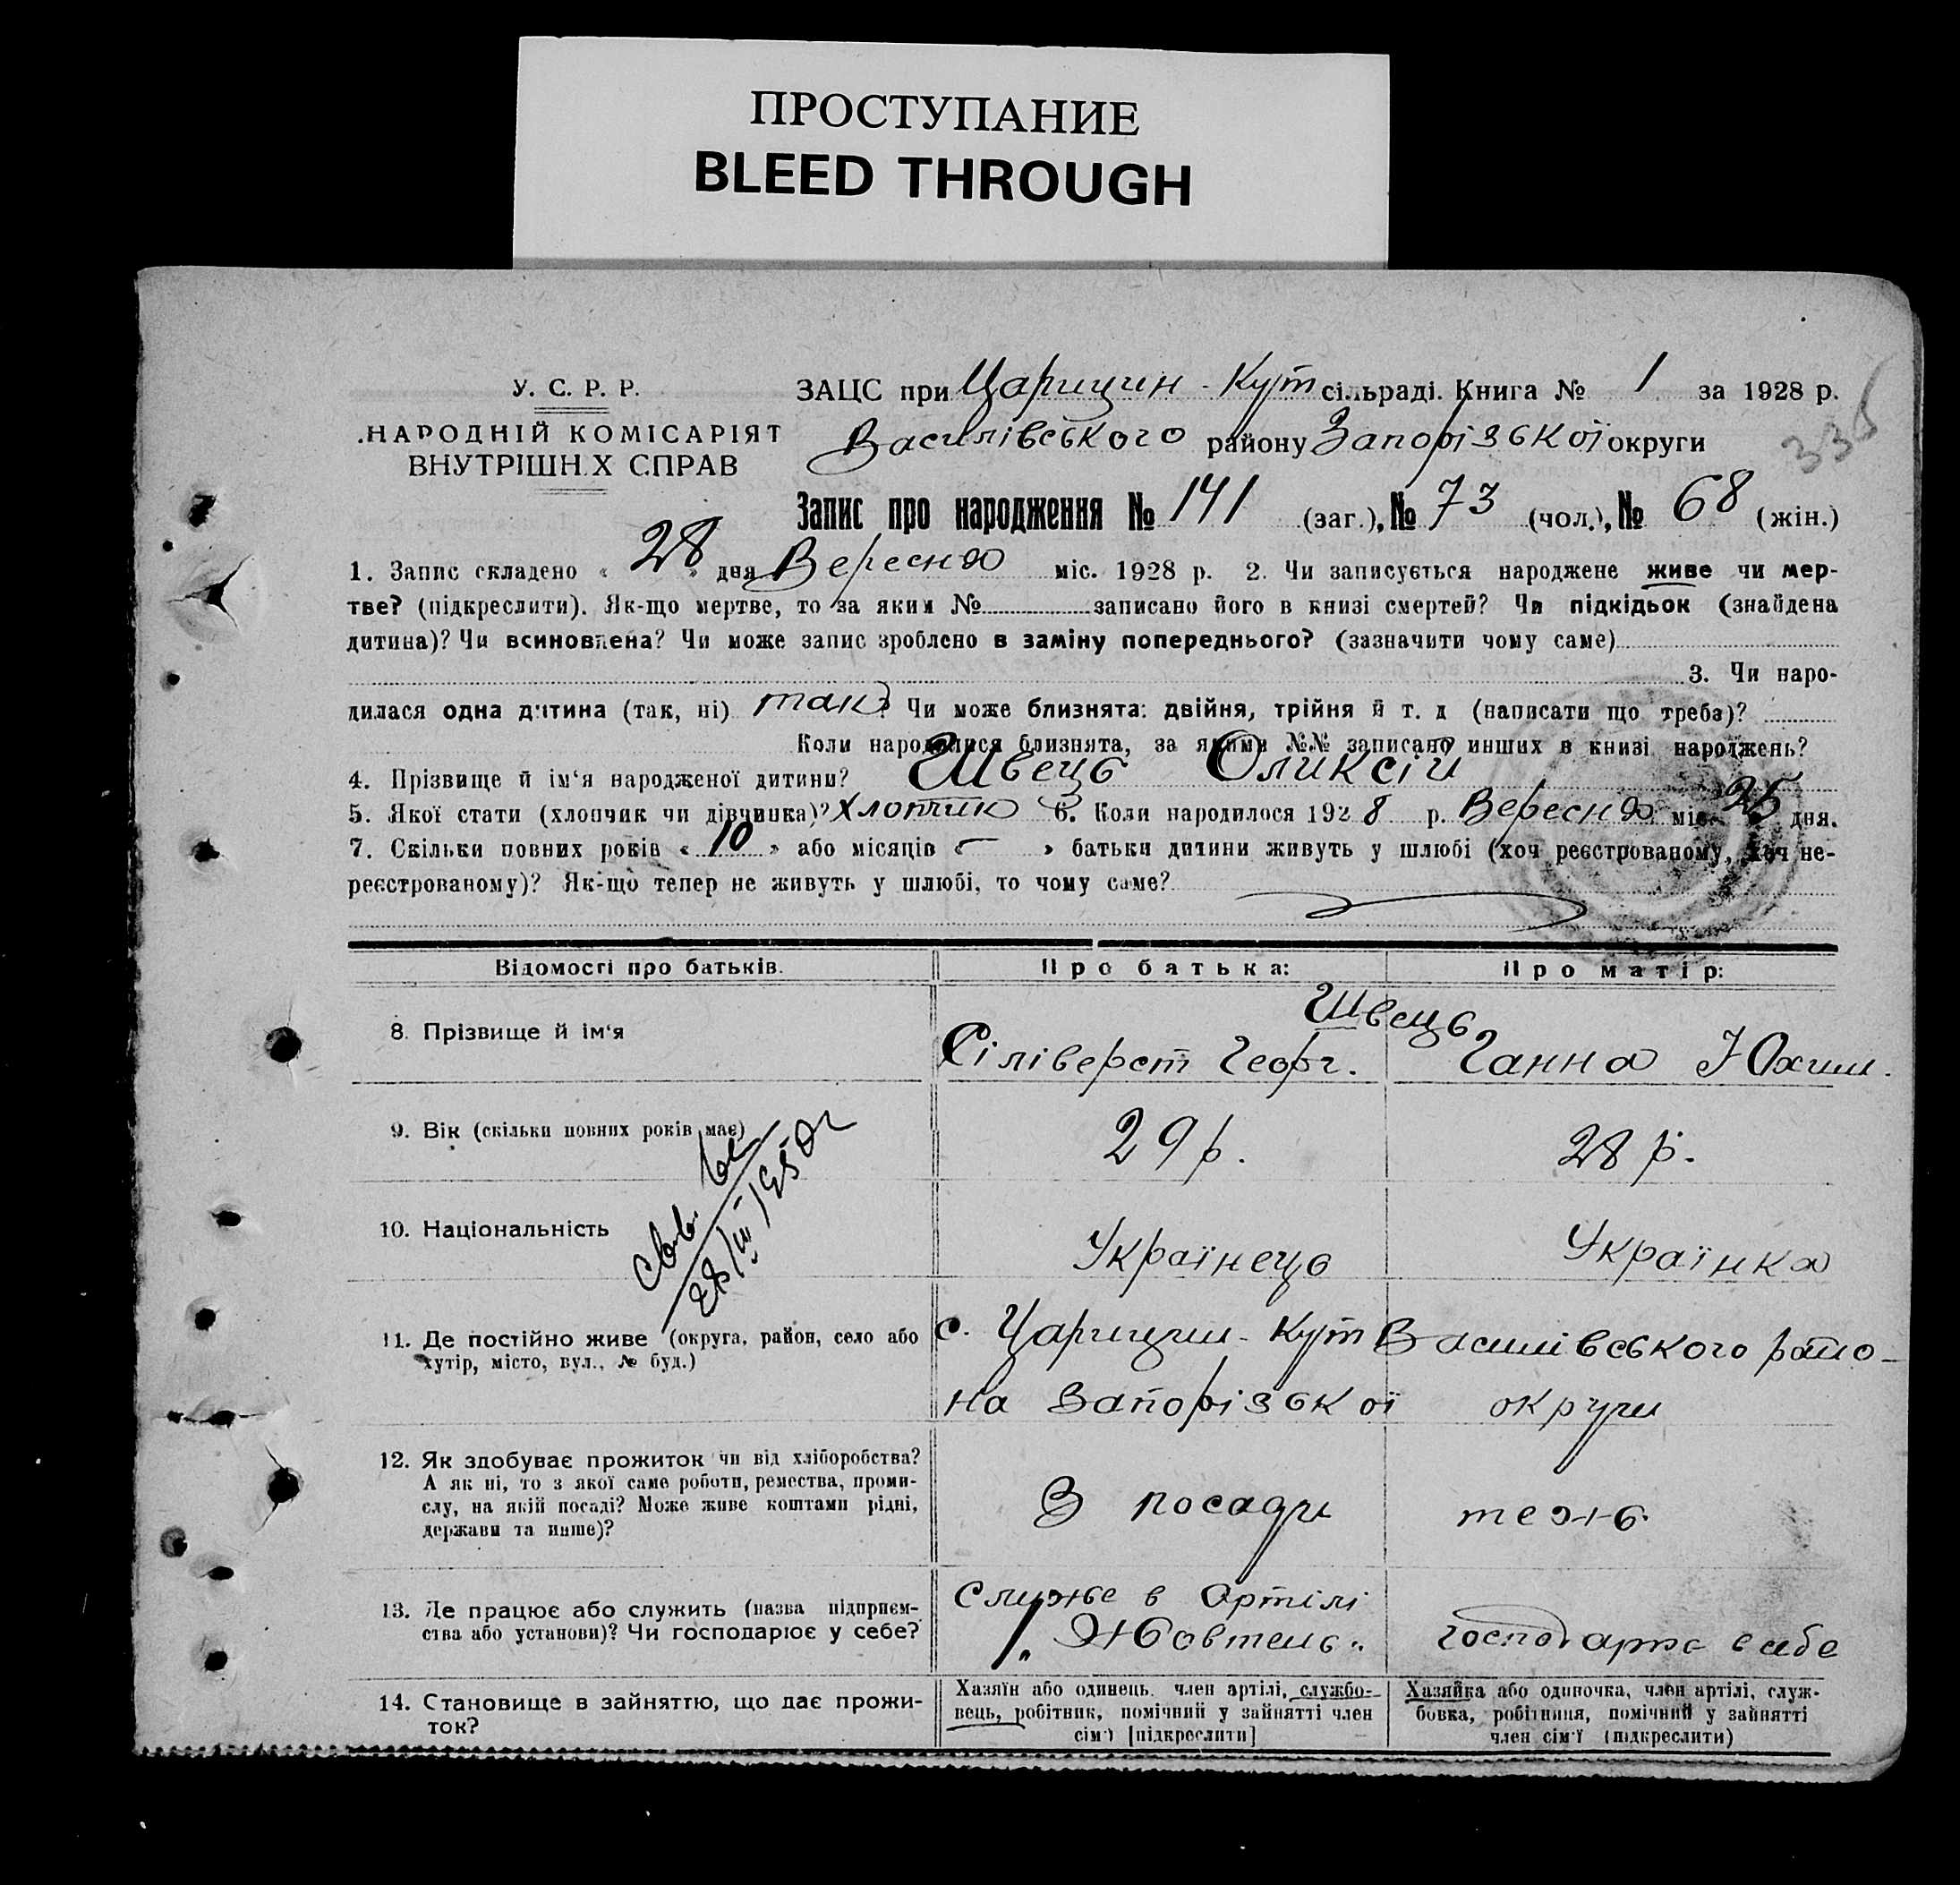 ПРОСТУПАНИЕ
BLEED THROUGH
У. С. Р. Р.
НАРОДНІЙ КОМІСАРІЯТ
ВНУТРІШНІХ СПРАВ
ЗАЦС при Царицин-Кут сільраді. Книга № 1 за 1928 р.
Василівського району Запорізької округи
335
Запис про народження № 141 (заг.), № 73 (чол.), № 68 (жін.)
1. Запис складено « 28 » дня Вересня міс. 1928 р. 2. Чи записується народжене живе чи мер-
тве? (підкреслити). Як-що мертве, то за яким № записано його в книзі смертей? Чи підкідьок (знайдена
дитина)? Чи всиновлена? Чи може запис зроблено в заміну попереднього? (зазначити чому саме)
3. Чи наро-
дилася одна дитина (так, ні) так? Чи може близнята: двійня, трійня й т. д (написати що треба)?
Коли народилися близнята, за якими №№ записано инших в книзі народжень?
4. Прізвище й ім'я народженої дитини? Швець Оликсій
5. Якої стати (хлопчик чи дівчинка)? Хлопчик 6. Коли народилося 1928 р. Вересня міс. 25 дня.
7. Скільки повних років « 10 » або місяців « — » батьки дитини живуть у шлюбі (хоч реєстрованому, хоч не-
реєстрованому)? Як-що тепер не живуть у шлюбі, то чому саме?
Відомості про батьків. Про батька: Про матір:
Швець
8. Прізвище й ім'я Сіліверст Георг. Ганна Юхим.
9. Вік (скільки повних років має) 29 р. 28 р.
10. Національність Українець Українка
28/III/1950г
11. Де постійно живе (округа, район, село або
хутір, місто, вул., № буд.)
с. Царицин-Кут Василівського райо-
на Запорізької округи
12. Як здобуває прожиток чи від хліборобства?
А як ні, то з якої саме роботи, ремества, проми-
слу, на якій посаді? Може живе коштами рідні,
держави та инше)?
З посади тежь
13. Де працює або служить (назва підприєм-
ства або установи)? Чи господарює у себе?
Служе в Артілі
"Жовтень"
господарює в себе
14. Становище в зайняттю, що дає прожи-
ток?
Хазяїн або одинець, член артілі, службо-
вець, робітник, помічний у зайнятті член
сім'ї [підкреслити]
Хазяйка або одиночка, член артілі, служ-
бовка, робітниця, помічний у зайнятті
член сім'ї (підкреслити)